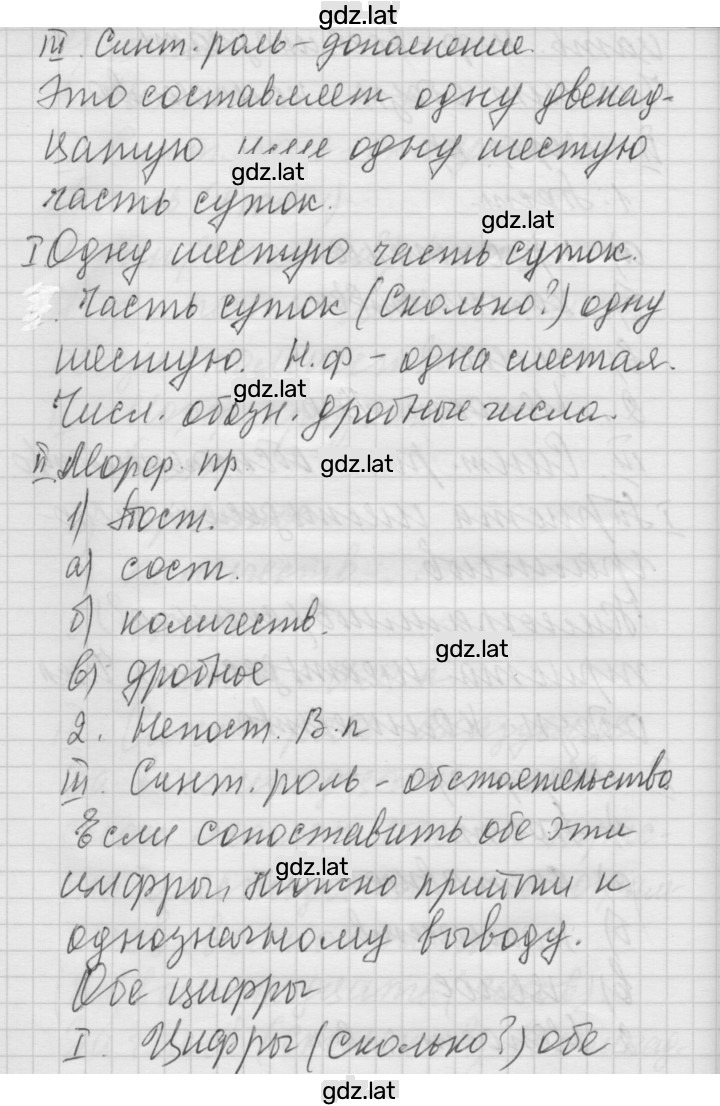 gdz.lat
III. Синт. роль – дополнение.
Это составляет одну двенад-
цатую или одну шестую
gdz.lat
часть суток.
gdz.lat
I Одну шестую часть суток.
Часть суток (Сколько?) одну
шестую. Н.ф – одна шестая.
gdz.lat
Числ. обозн. дробные числа.
II Морф. пр
gdz.lat
1) Пост.
а) сост.
б) количеств.
gdz.lat
в) дробное
2. Непост. В.п
III. Синт. роль – обстоятельство
Если сопоставить обе эти
gdz.lat
цифры, можно прийти к
однозначному выводу.
Обе цифры
I. Цифры (сколько?) обе
gdz.lat